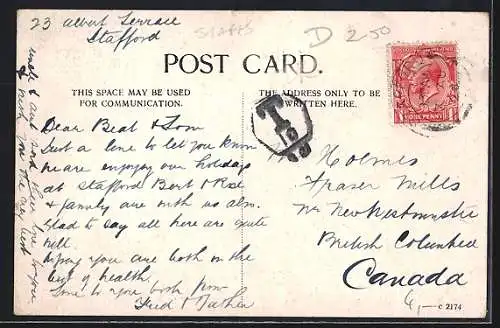 23 Albert Terrace
Stafford
Staffs
D 250
POST CARD.
THIS SPACE MAY BE USED
FOR COMMUNICATION.
THE ADDRESS ONLY TO BE
WRITTEN HERE.
ONE PENNY
T
10
Dear Beat & Tom
Just a line to let you know
we are enjoying our holidays
at Stafford Bert & Rose
& family are with us also.
Glad to say all here are quite
well.
Hoping you are both in the
best of health.
Love to you both from
Fred & Mother
uncle & aunt send their love to you
& wish you the very best
Holmes
Fraser Mills
Nr New Westminster
British Columbia
Canada
c 2174